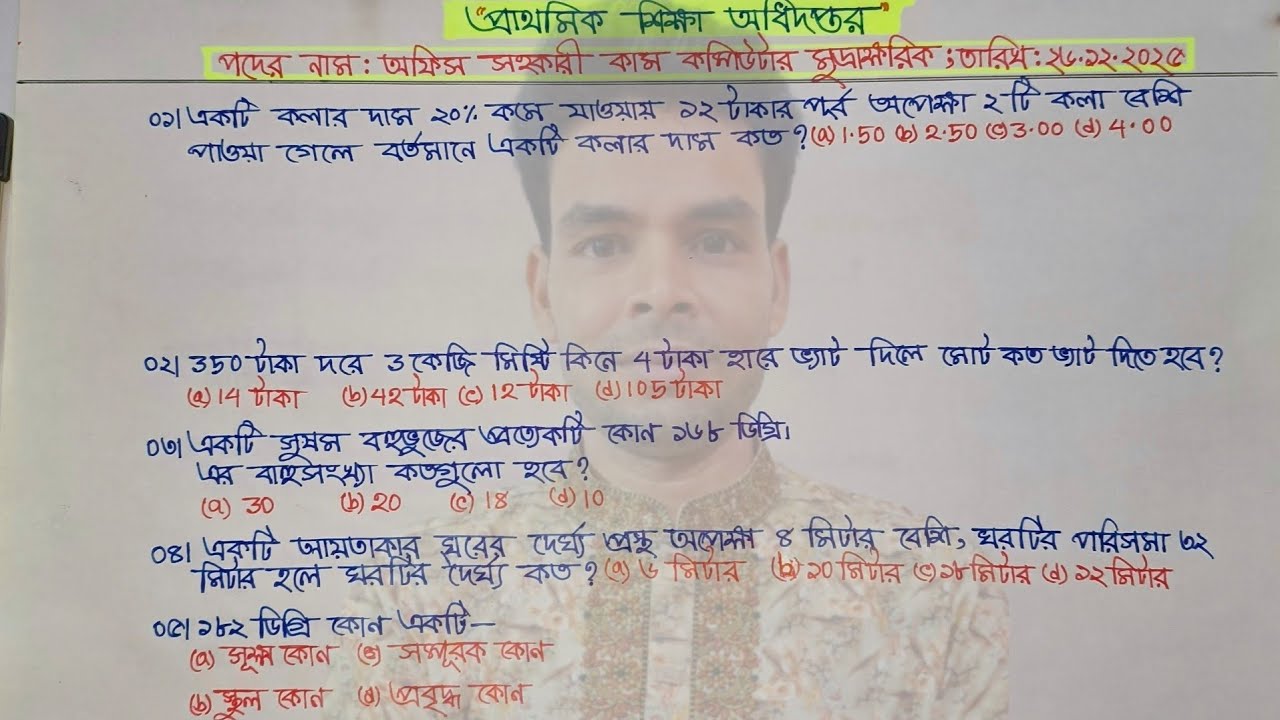 "প্রাথমিক শিক্ষা অধিদপ্তর"
পদের নাম: অফিস সহকারী কাম কম্পিউটার মুদ্রাক্ষরিক; তারিখ: ২৬.১২.২০২৫
০১। একটি কলার দাম ২০% কমে যাওয়ায় ১২ টাকার পূর্ব অপেক্ষা ২ টি কলা বেশি
পাওয়া গেলে বর্তমানে একটি কলার দাম কত? (a) 1.50 (b) 2.50 (c) 3.00 (d) 4.00
০২। 350 টাকা দরে 3 কেজি মিষ্টি কিনে 4 টাকা হারে ভ্যাট দিলে মোট কত ভ্যাট দিতে হবে?
(a) 14 টাকা (b) 42 টাকা (c) 12 টাকা (d) 105 টাকা
০৩। একটি সুষম বহুভুজের প্রত্যেকটি কোন ১৬৮ ডিগ্রি।
এর বাহুসংখ্যা কতগুলো হবে?
(a) 30 (b) 20 (c) 18 (d) 10
০৪। একটি আয়তাকার ঘরের দৈর্ঘ্য প্রস্থ অপেক্ষা ৪ মিটার বেশি, ঘরটির পরিসমা ৩২
মিটার হলে ঘরটির দৈর্ঘ্য কত? (a) ৬ মিটার (b) ১০ মিটার (c) ১৮ মিটার (d) ১২ মিটার
০৫। ১৮২ ডিগ্রি কোন একটি—
(a) সূক্ষ্ম কোন (c) সম্পূরক কোন
(b) স্থুল কোন (d) প্রবৃদ্ধ কোন